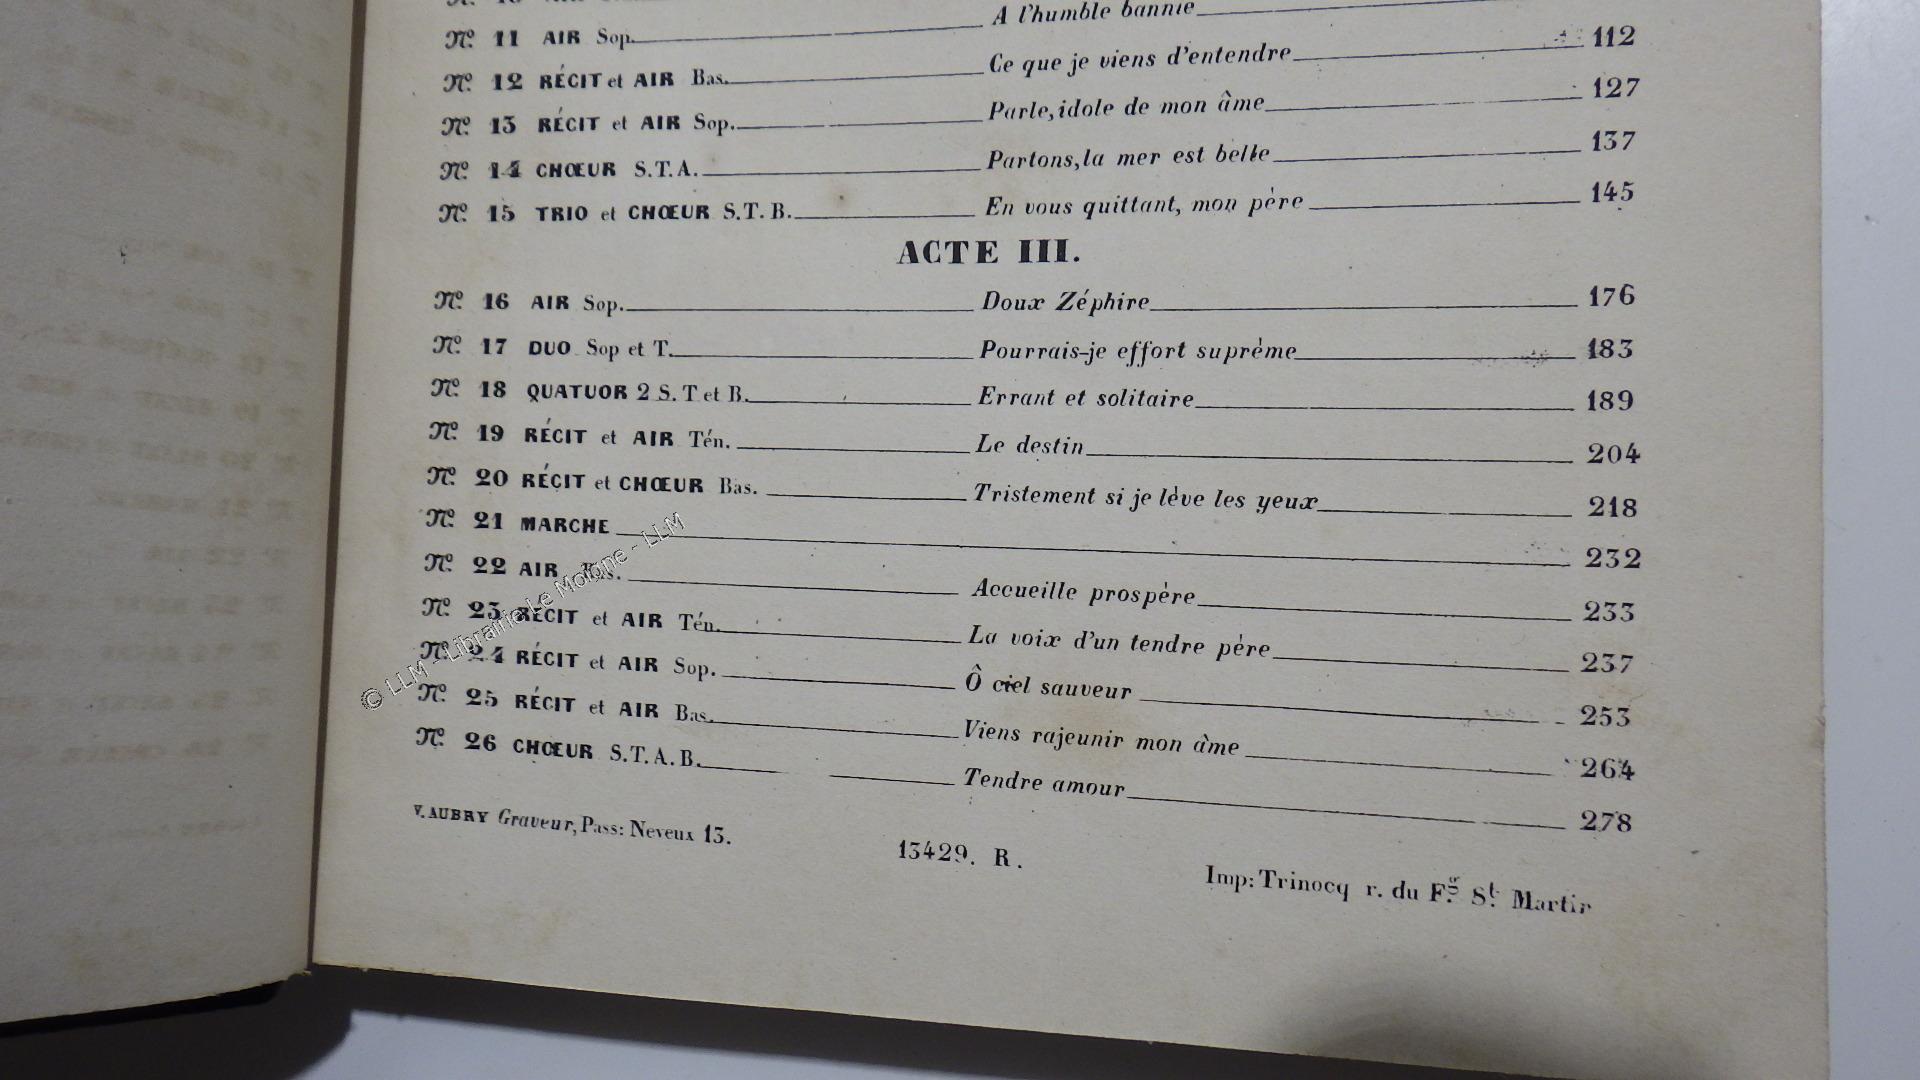 N.º 11 AIR Sop. A l'humble bannie
N.º 12 RÉCIT et AIR Bas. Ce que je viens d'entendre 112
N.º 13 RÉCIT et AIR Sop. Parle, idole de mon âme 127
N.º 14 CHŒUR S.T.A. Partons, la mer est belle 137
N.º 15 TRIO et CHŒUR S.T.B. En vous quittant, mon père 145
ACTE III.
N.º 16 AIR Sop. Doux Zéphire 176
N.º 17 DUO Sop et T. Pourrais-je effort suprème 183
N.º 18 QUATUOR 2 S. T et B. Errant et solitaire 189
N.º 19 RÉCIT et AIR Tén. Le destin 204
N.º 20 RÉCIT et CHŒUR Bas. Tristement si je lève les yeux 218
N.º 21 MARCHE 232
N.º 22 AIR Bas. Accueille prospère 233
N.º 23 RÉCIT et AIR Tén. La voix d'un tendre père 237
N.º 24 RÉCIT et AIR Sop. Ô ciel sauveur 253
N.º 25 RÉCIT et AIR Bas. Viens rajeunir mon âme 264
N.º 26 CHŒUR S.T.A.B. Tendre amour 278
V. AUBRY Graveur, Pass: Neveux 13. 13429. R. Imp: Trinocq r. du F.g S.t Martin
© LLM - Librairie Le Moigne - LLM